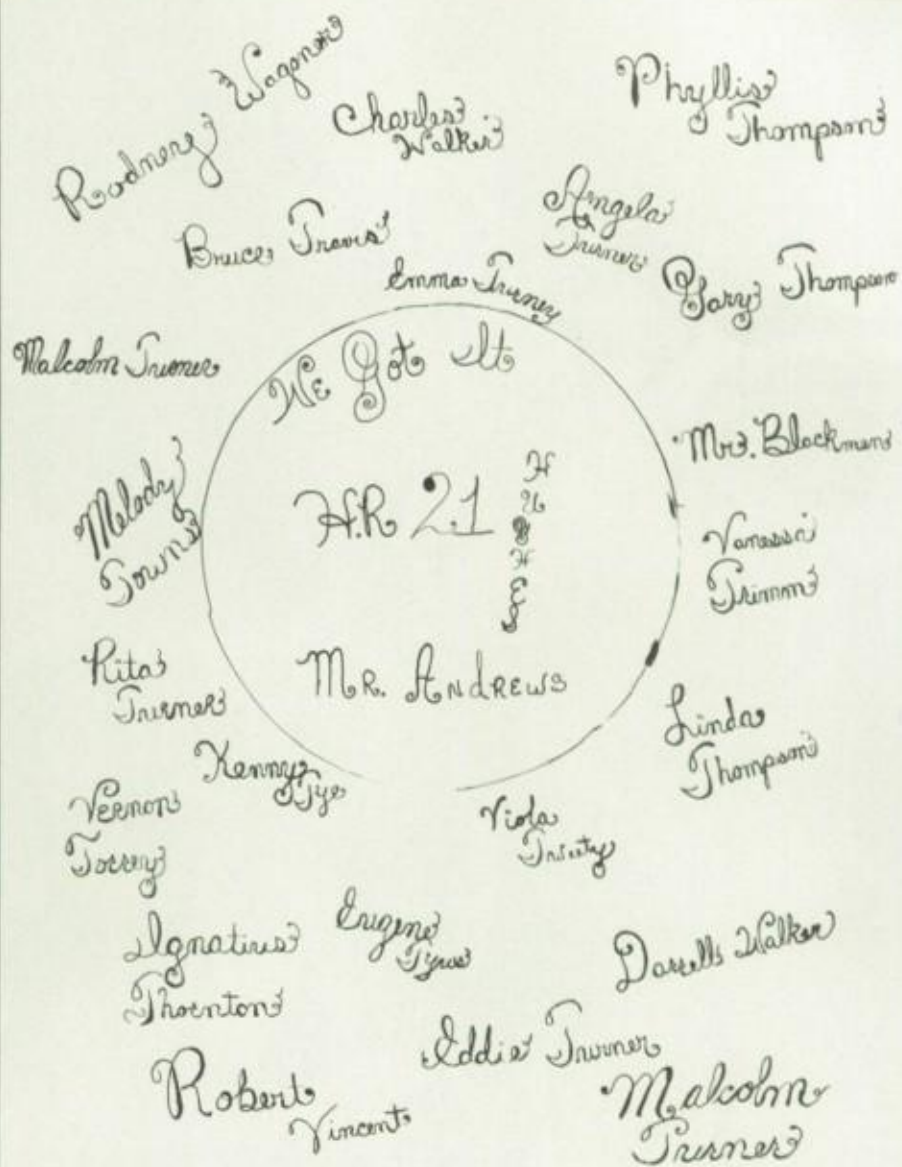 Rodney Wagoner
Charles
Walker
Phyllis
Thompson
Bruce Travis
Angela
Turner
Emma Turney
Gary Thompson
Malcolm Turner
We Got It
Mrs. Blackmen
Melody
Towns
H.R 21
HUGHES
Vanessa
Trimm
Rita
Turner
MR. ANDREWS
Linda
Thompson
Kenny
Tye
Vernon
Torrey
Viola
Ignatius
Thornton
Eugene
Tyus
Darrell Walker
Eddie Turner
Robert
Vincent
Malcolm
Turner